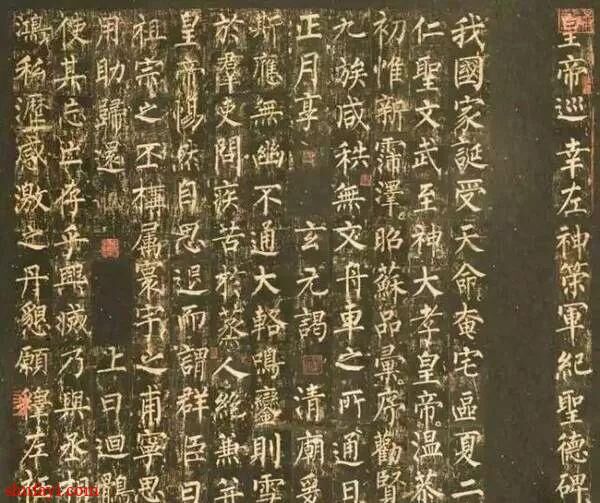 皇帝巡幸左神策軍紀聖德碑
我國家誕受天命奄宅區夏二
仁聖文武至神大孝皇帝溫恭
初惟新霈澤昭蘇品彙序勸賢
九族咸秩無文舟車之所通日
正月享 玄元謁 清廟爰
斯應無幽不通大輅鳴鑾則雪
於羣吏問疾苦於蒸人絕兼并
皇帝惕然自思退而謂群臣曰
祖宗之丕構属寰宇之甫寧思
用助歸還 上曰迴鶻
使其忘亡存乎興滅乃與丞
鴻稱瀝感激之丹懇願釋左